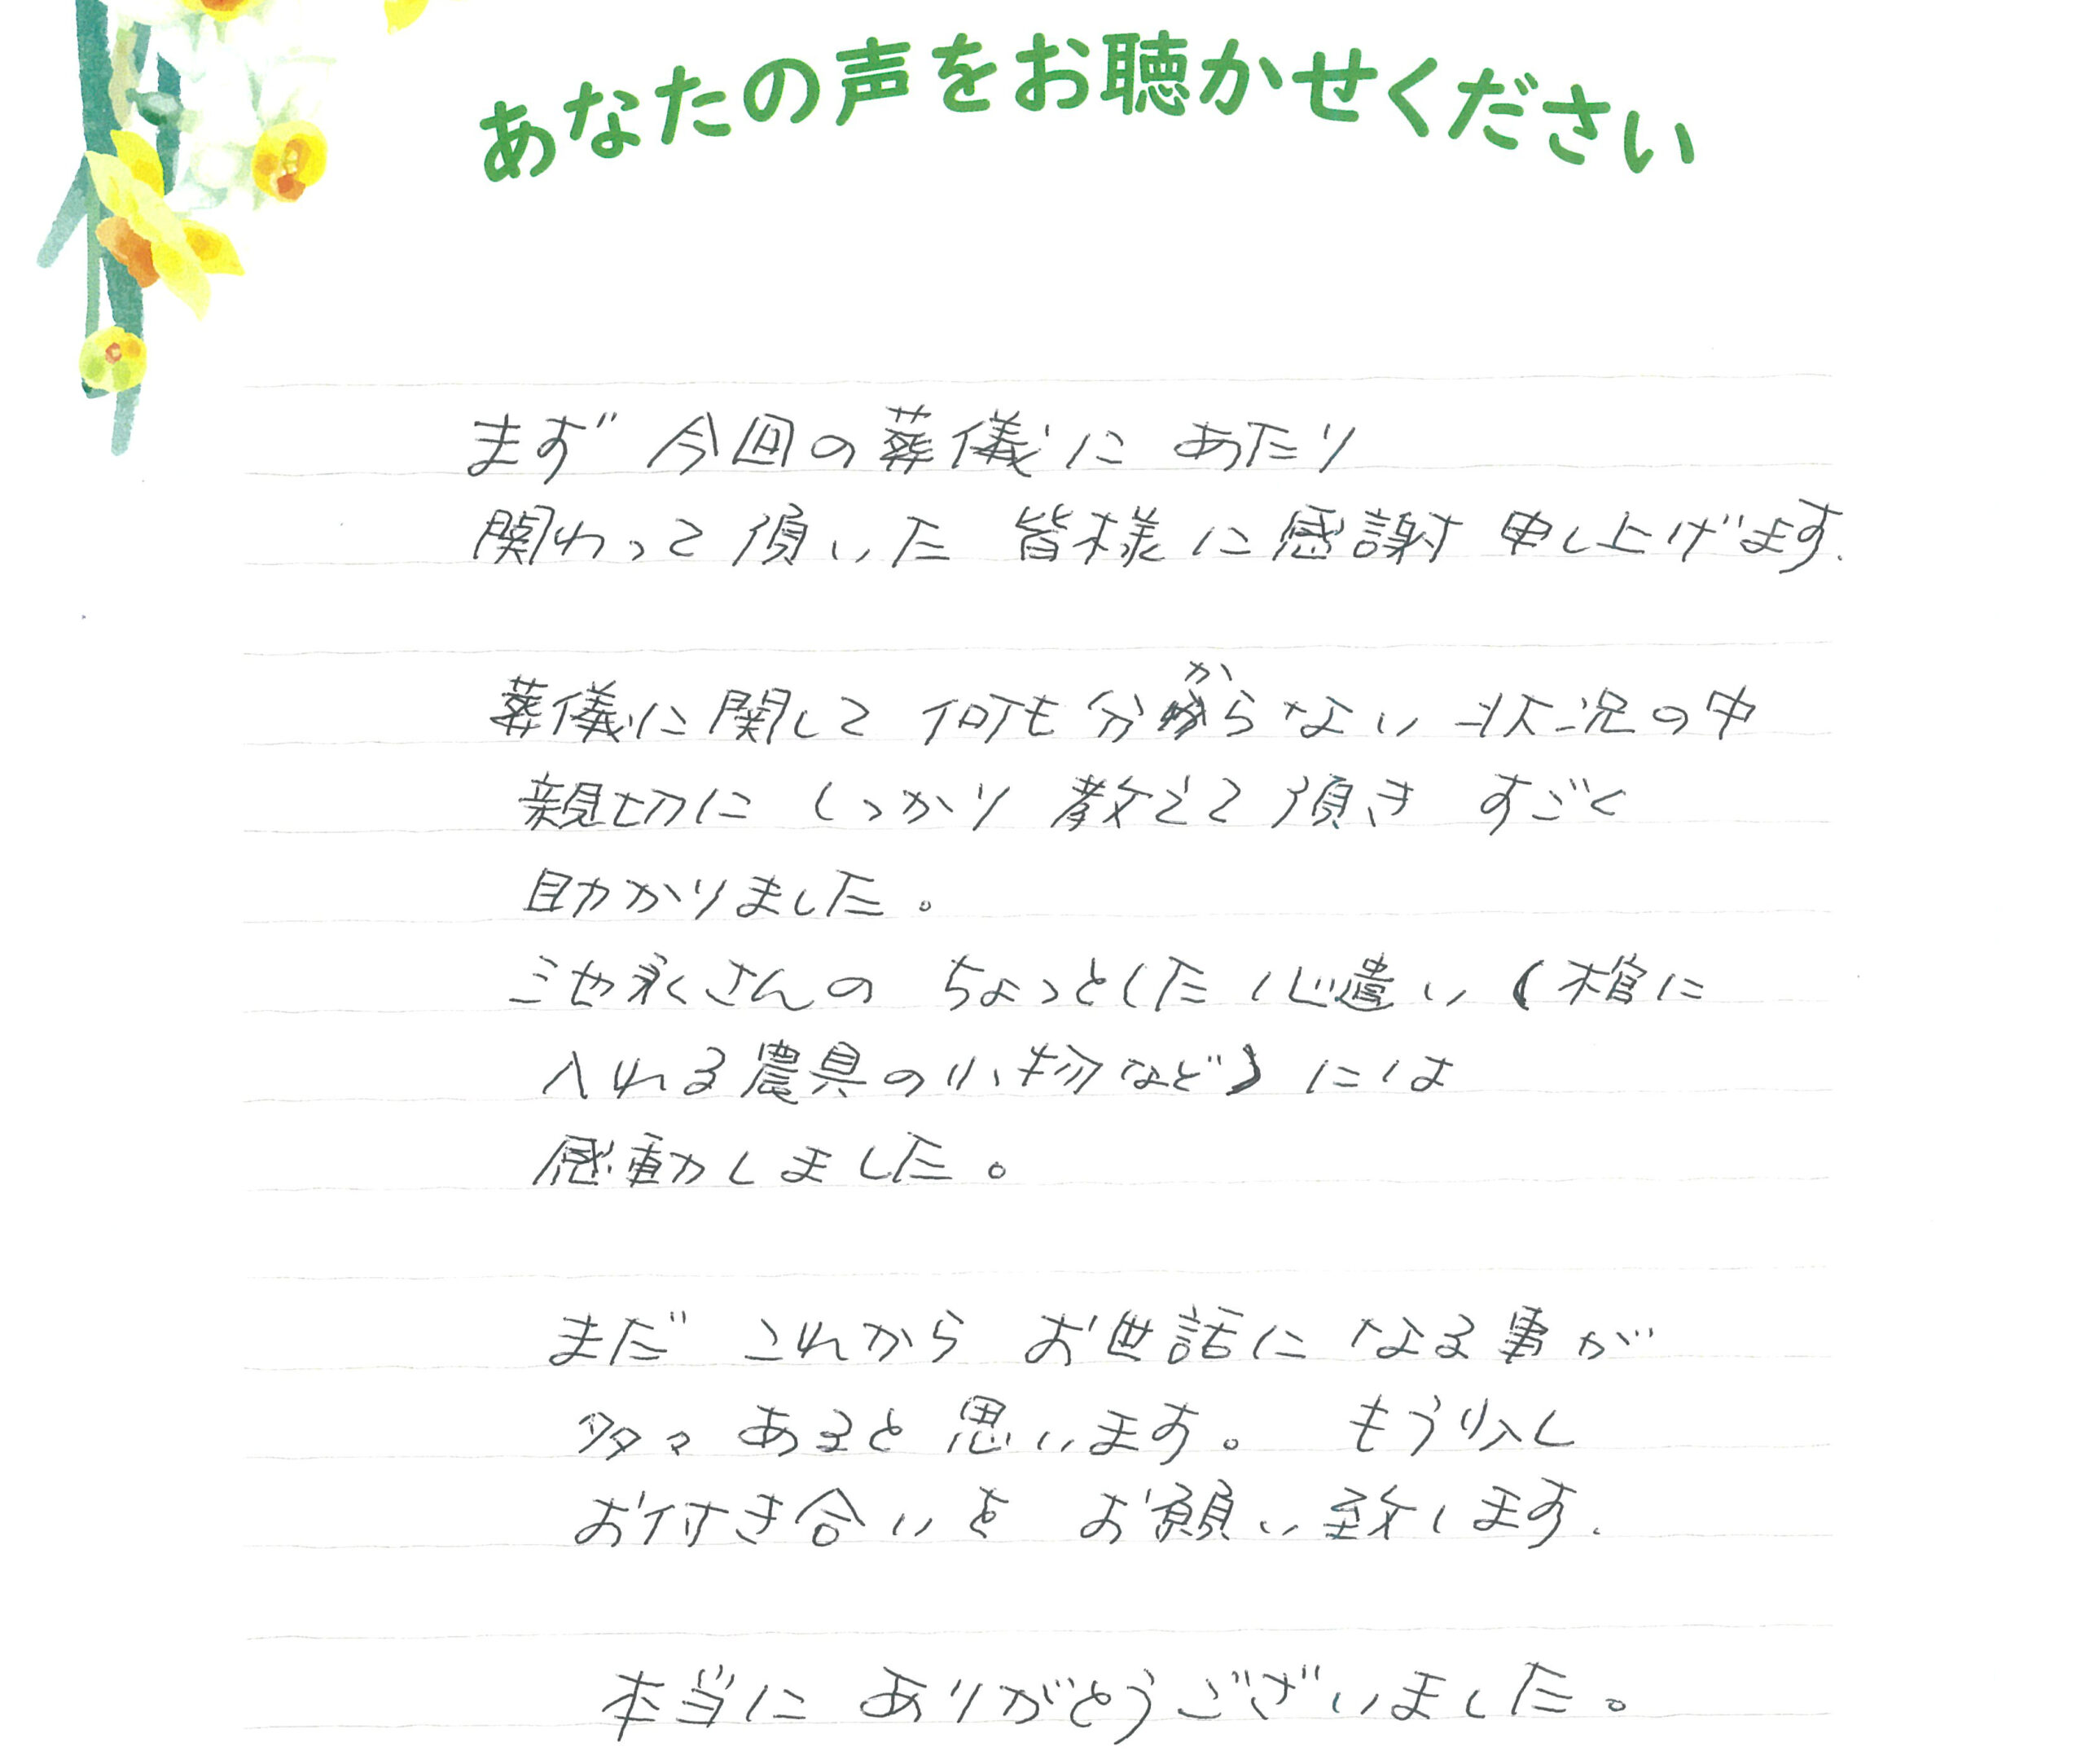 あなたの声をお聴かせください
まず 今回の葬儀に あたり
関わって頂いた 皆様に感謝 申し上げます.
葬儀に関して 何も分からない状況の中
親切に しっかり 教えて頂き すごく
助かりました。
三池永さんの ちょっとした心遣い (棺に
入れる農具の小物など) には
感動しました。
まだ これから お世話に なる事が
多々 あると思います。 もう少し
お付き合いを お願い致します.
本当に ありがとうございました。